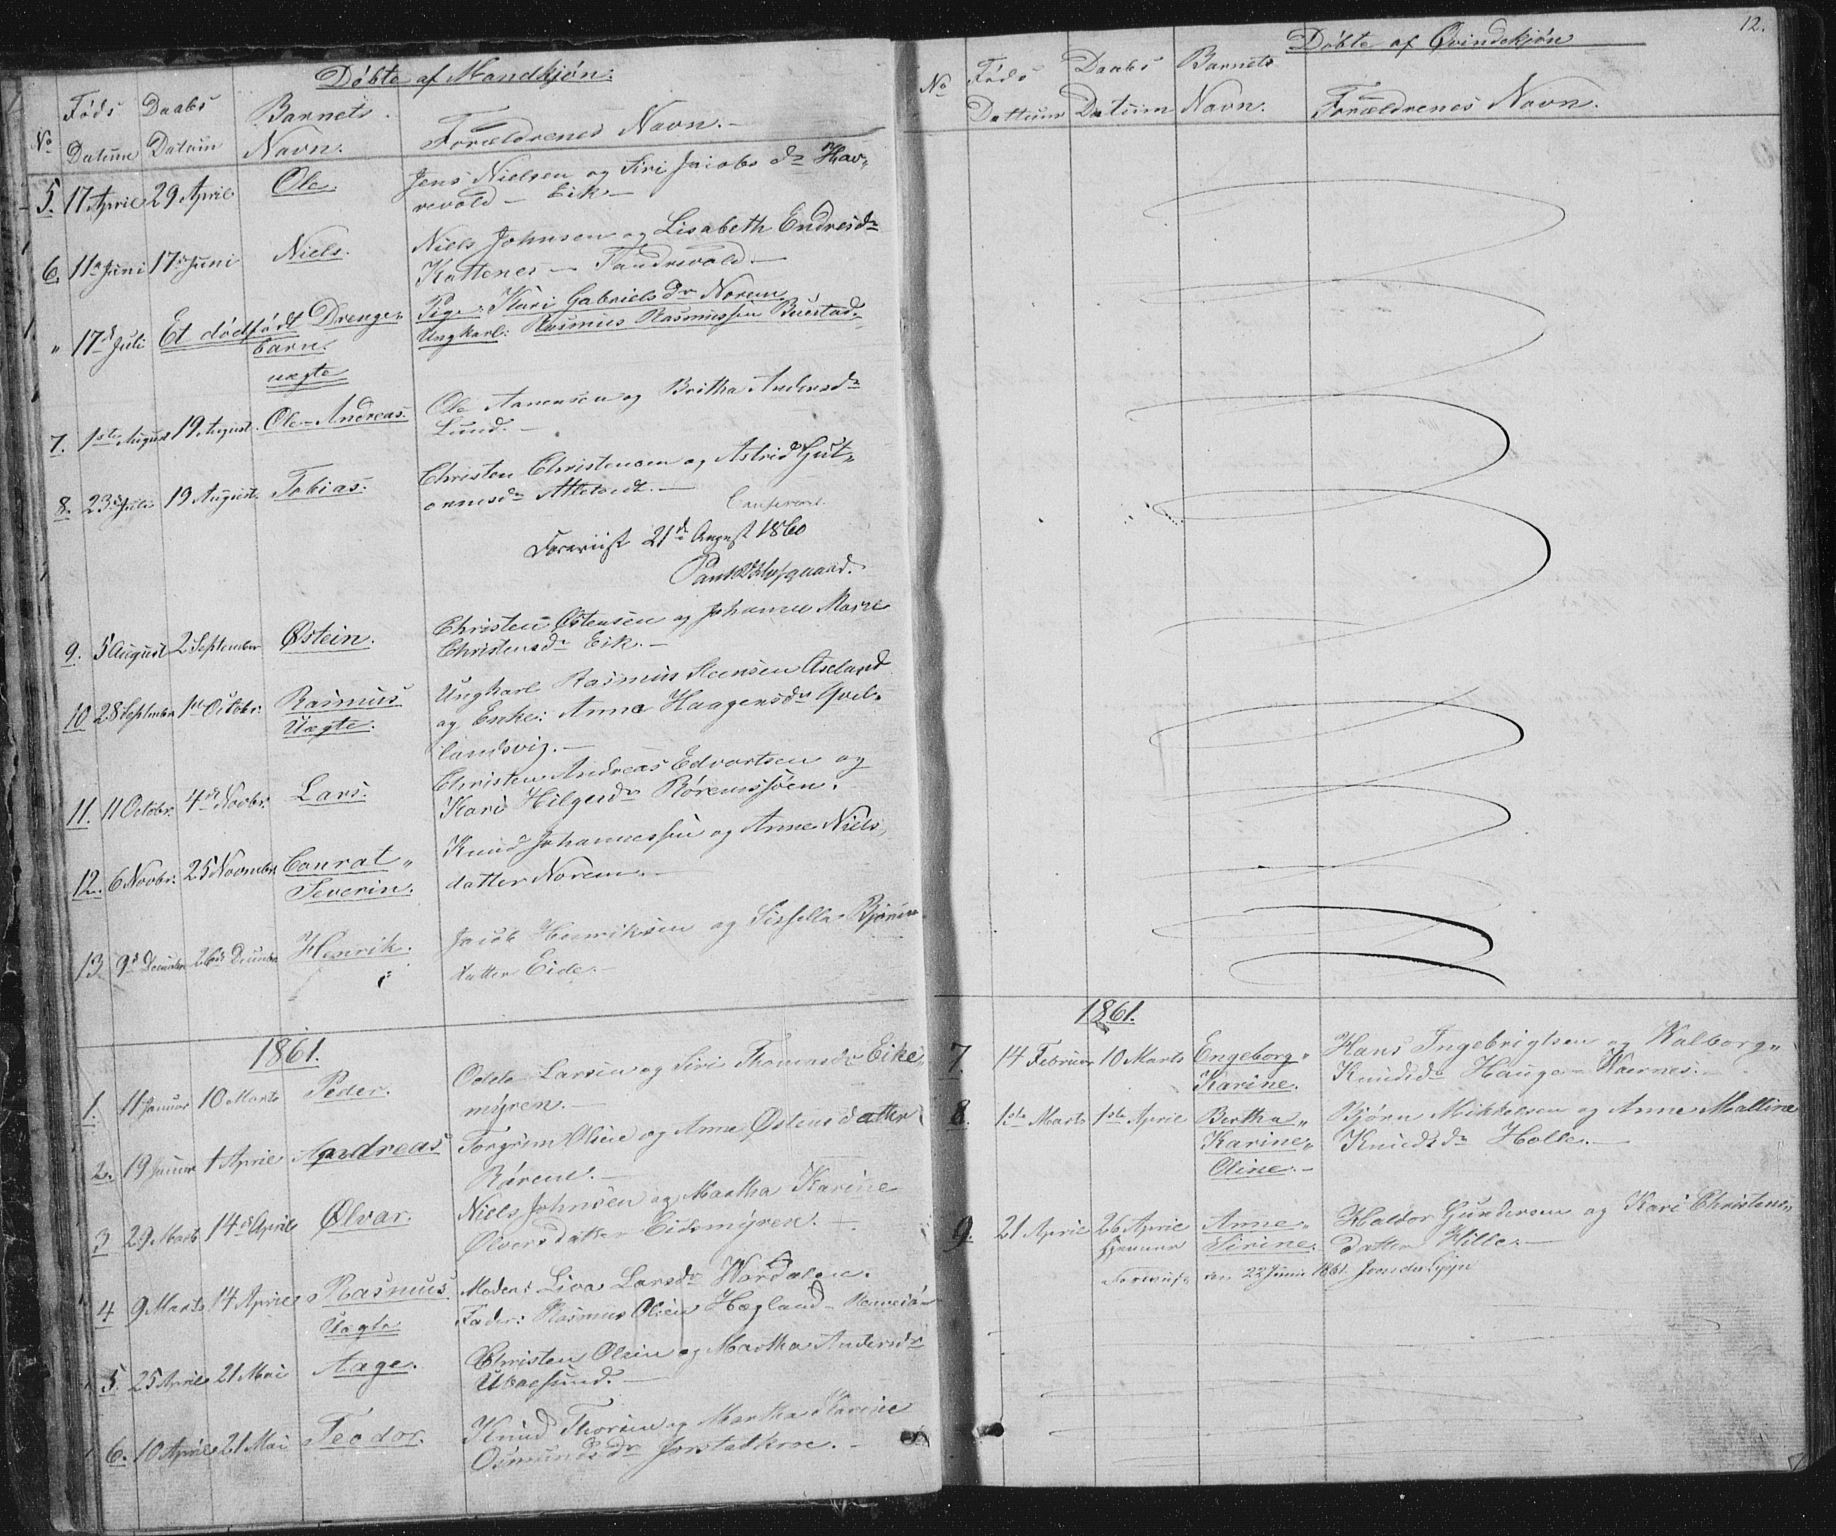 Døbte af Mandkjøn:
No Føds Datum Daabs Datum Barnets Navn. Forældrenes Navn.
5. 17 April 29 April Ole. Jens Nielsen og Siri Jacobs dr Hav„
revold – Eik –
6. 11te Juni 17de Juni Niels. Niels Johnsen og Lisabeth Endresdr
Kattenes – Tandrevold –
„ 17d Juli Et dødfødt Drenge„ Pige: Kari Gabriels dr Norem
barn. Ungkarl: Rasmus Rasmussen Buestad.
uægte
7. 1ste August 19 August. Ole-Andreas. Ole Aanensen og Britha Andersdr
Lund. –
8. 23de Juli 19 August. Tobias. Christen Christensen og Astrid Gut„
ormsdr –
Confereret.
Foreviist 21d August 1860
9. 5 August 2 September Østein. Christen Østensen og Johanne Marie
Christensdr Eik. –
10 28 September 1ste October: Rasmus Ungkarl Rasmus Steensen Aseland
Uægte. og Enke: Anna Haagensdr Qvel„
landsvig. –
11. 11 Octobr. 4de Novbr. Lars. Christen Andreas Edvartsen og
Kari Hilgesdr Røremssjøen.
12. 6 Novbr. 25 Novembr. Conrat„ Knud Johannessen og Anne Niels„
Severin. datter Norem. –
13. 9d December 26de December Henrik. Jacob Henriksen og Sissella Bjørns
datter Eide. –
1861.
1. 11 Januar 10 Marts Peder. Odde Larsen og Siri Thomasdr Eike„
myren. –
2. 19 Januar 1 April Andreas Torgrim Olsen og Anne Østensdatter
Rørem. –
3 29 Marts 14de April Ølvar. Niels Johnsen og Martha Karine
Ølversdatter Eikemyren. –
4 9 Marts 14 April Rasmus. Moder: Liva Larsdr Wardalen.
Uægte Fader: Rasmus Olsen Hægland – Rennesø
5. 25 April 21 Mai Aage. Christen Olsen og Martha Andersdr
Ubaesund. –
6. 10 April 21 Mai Teodor. Knud Thorsen og Martha Karine
Osmundsdr Jorstadkroe. –
12.
Døbte af Qvindekjøn
No Føds Dattum Daabs Datum Barnets Navn. Forældrenes Navn.
1861.
7. 14 Februar 10 Marts Engeborg„ Hans Ingebrigtsen og Walborg„
Karine. Knudsdr Hauge – Waernes. –
8. 1ste Marts 1ste April Bertha„ Bjørn Mikkelsen og Anne Malline
Karine„ Knudsdr Holle. –
Oline. –
9. 21 April 26 April Anne„ Haldor Gundersen og Kari Christens„
hjemme Sirine. datter Hille. –
Foreviist den 22 Juni 1861.